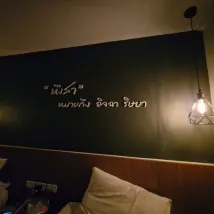 "หึงสา"
หมายถึง อิจฉา ริษยา